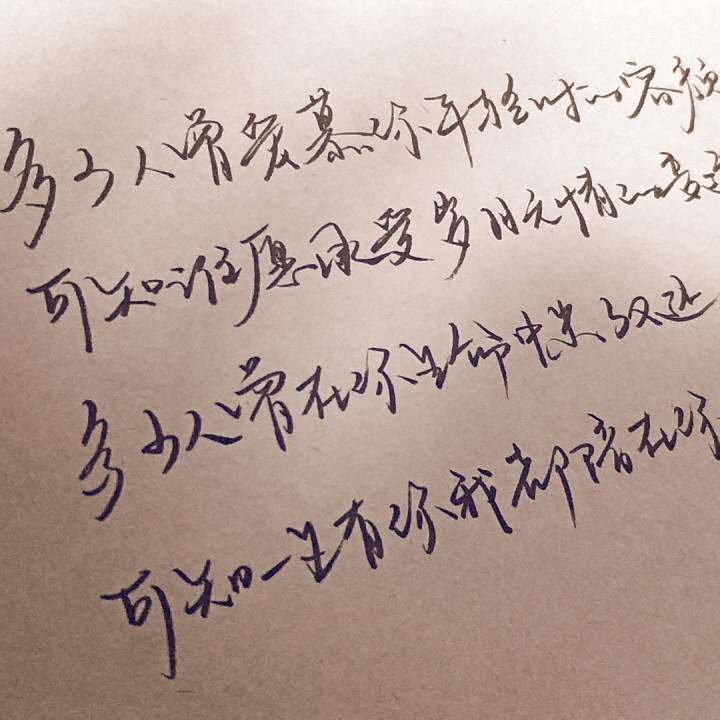 多少人曾爱慕你年轻时的容颜
可知谁愿承受岁月无情的变迁
多少人曾在你生命中来了又还
可知一生有你我都陪在你